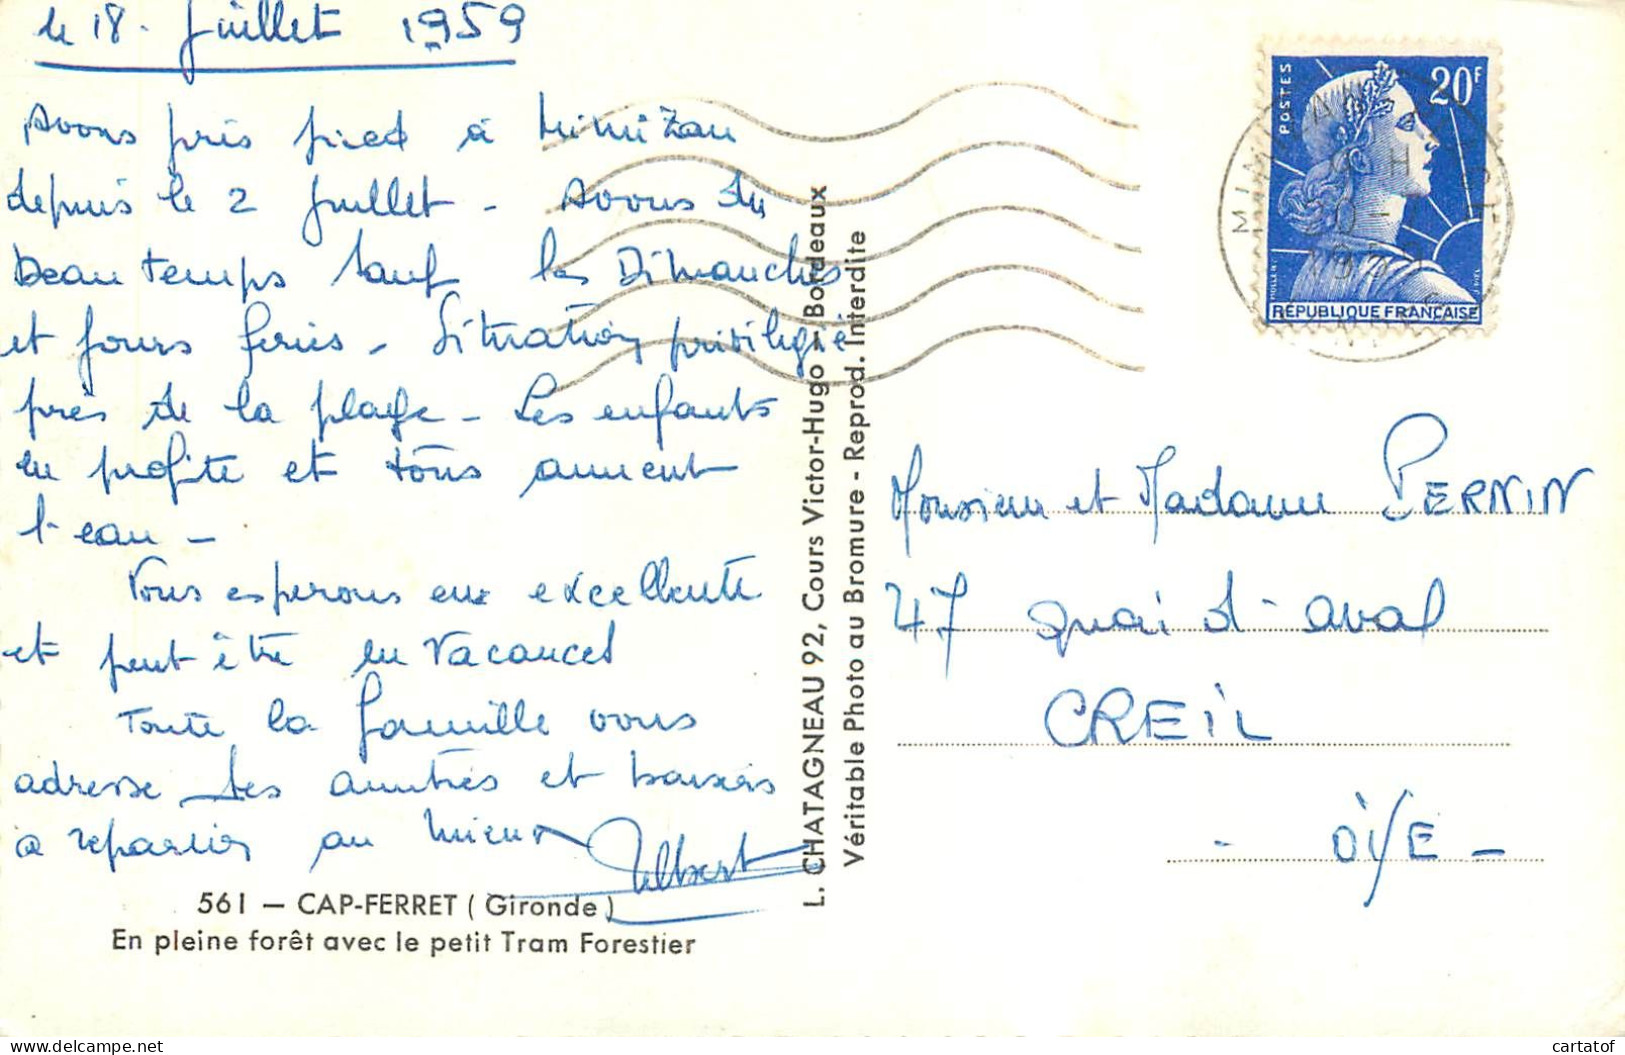 le 18. Juillet 1959
Avons pris pied à Mimizan
depuis le 2 Juillet - Avons du
beau temps sauf les Dimanches
et jours feriés - Situation privilégié
près de la plage - Les enfants
en profite et tous aiment
l'eau -
Vous esperons en excellente
et peut être en vacances
Toute la famille vous
adresse ses amitiés et baisers
a repartir au mieux
Albert
561 — CAP-FERRET ( Gironde )
En pleine forêt avec le petit Tram Forestier
L. CHATAGNEAU 92, Cours Victor-Hugo - Bordeaux
Véritable Photo au Bromure - Reprod. Interdite
POSTES
20F
RÉPUBLIQUE FRANÇAISE
Monsieur et Madame PERNIN
47 quai d'aval
CREIL
- OISE -
cartatof